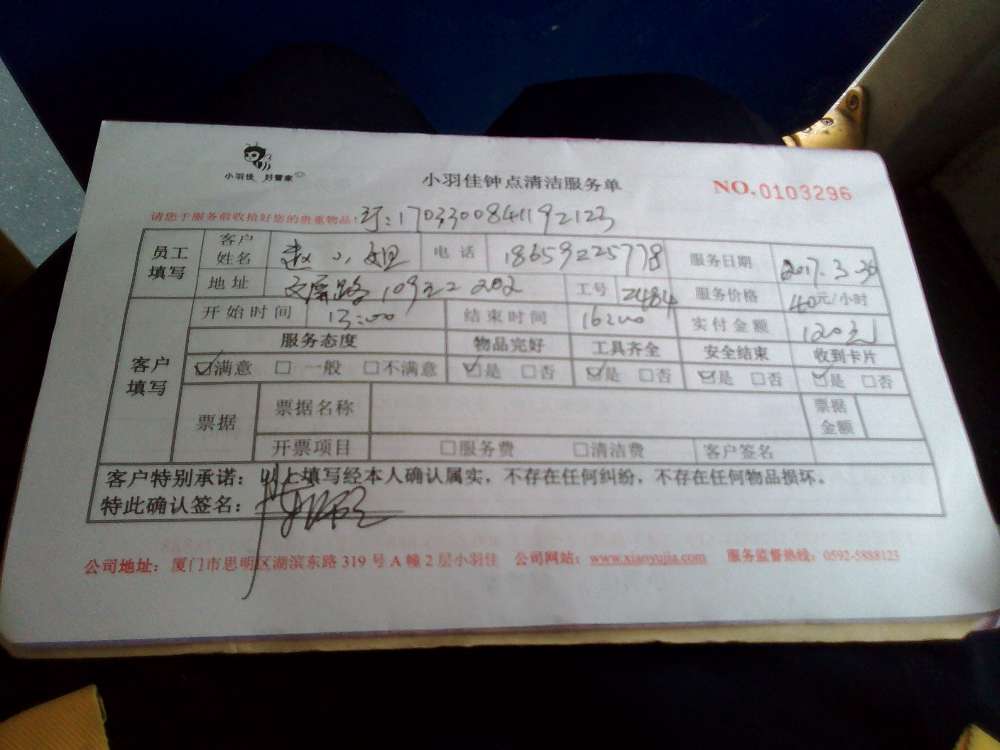 小羽佳 好管家
小羽佳钟点清洁服务单
NO.0103296
请您于服务前收拾好您的贵重物品! 1703300841192123
员工填写 客户姓名 赵小姐 电话 18659225778 服务日期 2017.3.30
地址 文屏路109之22 202 工号 2484 服务价格 40元/小时
客户填写 开始时间 13:00 结束时间 16:00 实付金额 120元
服务态度 物品完好 工具齐全 安全结束 收到卡片
☑满意 □一般 □不满意 ☑是 □否 ☑是 □否 ☑是 □否 ☑是 □否
票据 票据名称 票据金额
开票项目 □服务费 □清洁费 客户签名
客户特别承诺：以上填写经本人确认属实，不存在任何纠纷，不存在任何物品损坏。
特此确认签名：
公司地址：厦门市思明区湖滨东路319号A幢2层小羽佳 公司网站：www.xiaoyujia.com 服务监督热线：0592-5888123